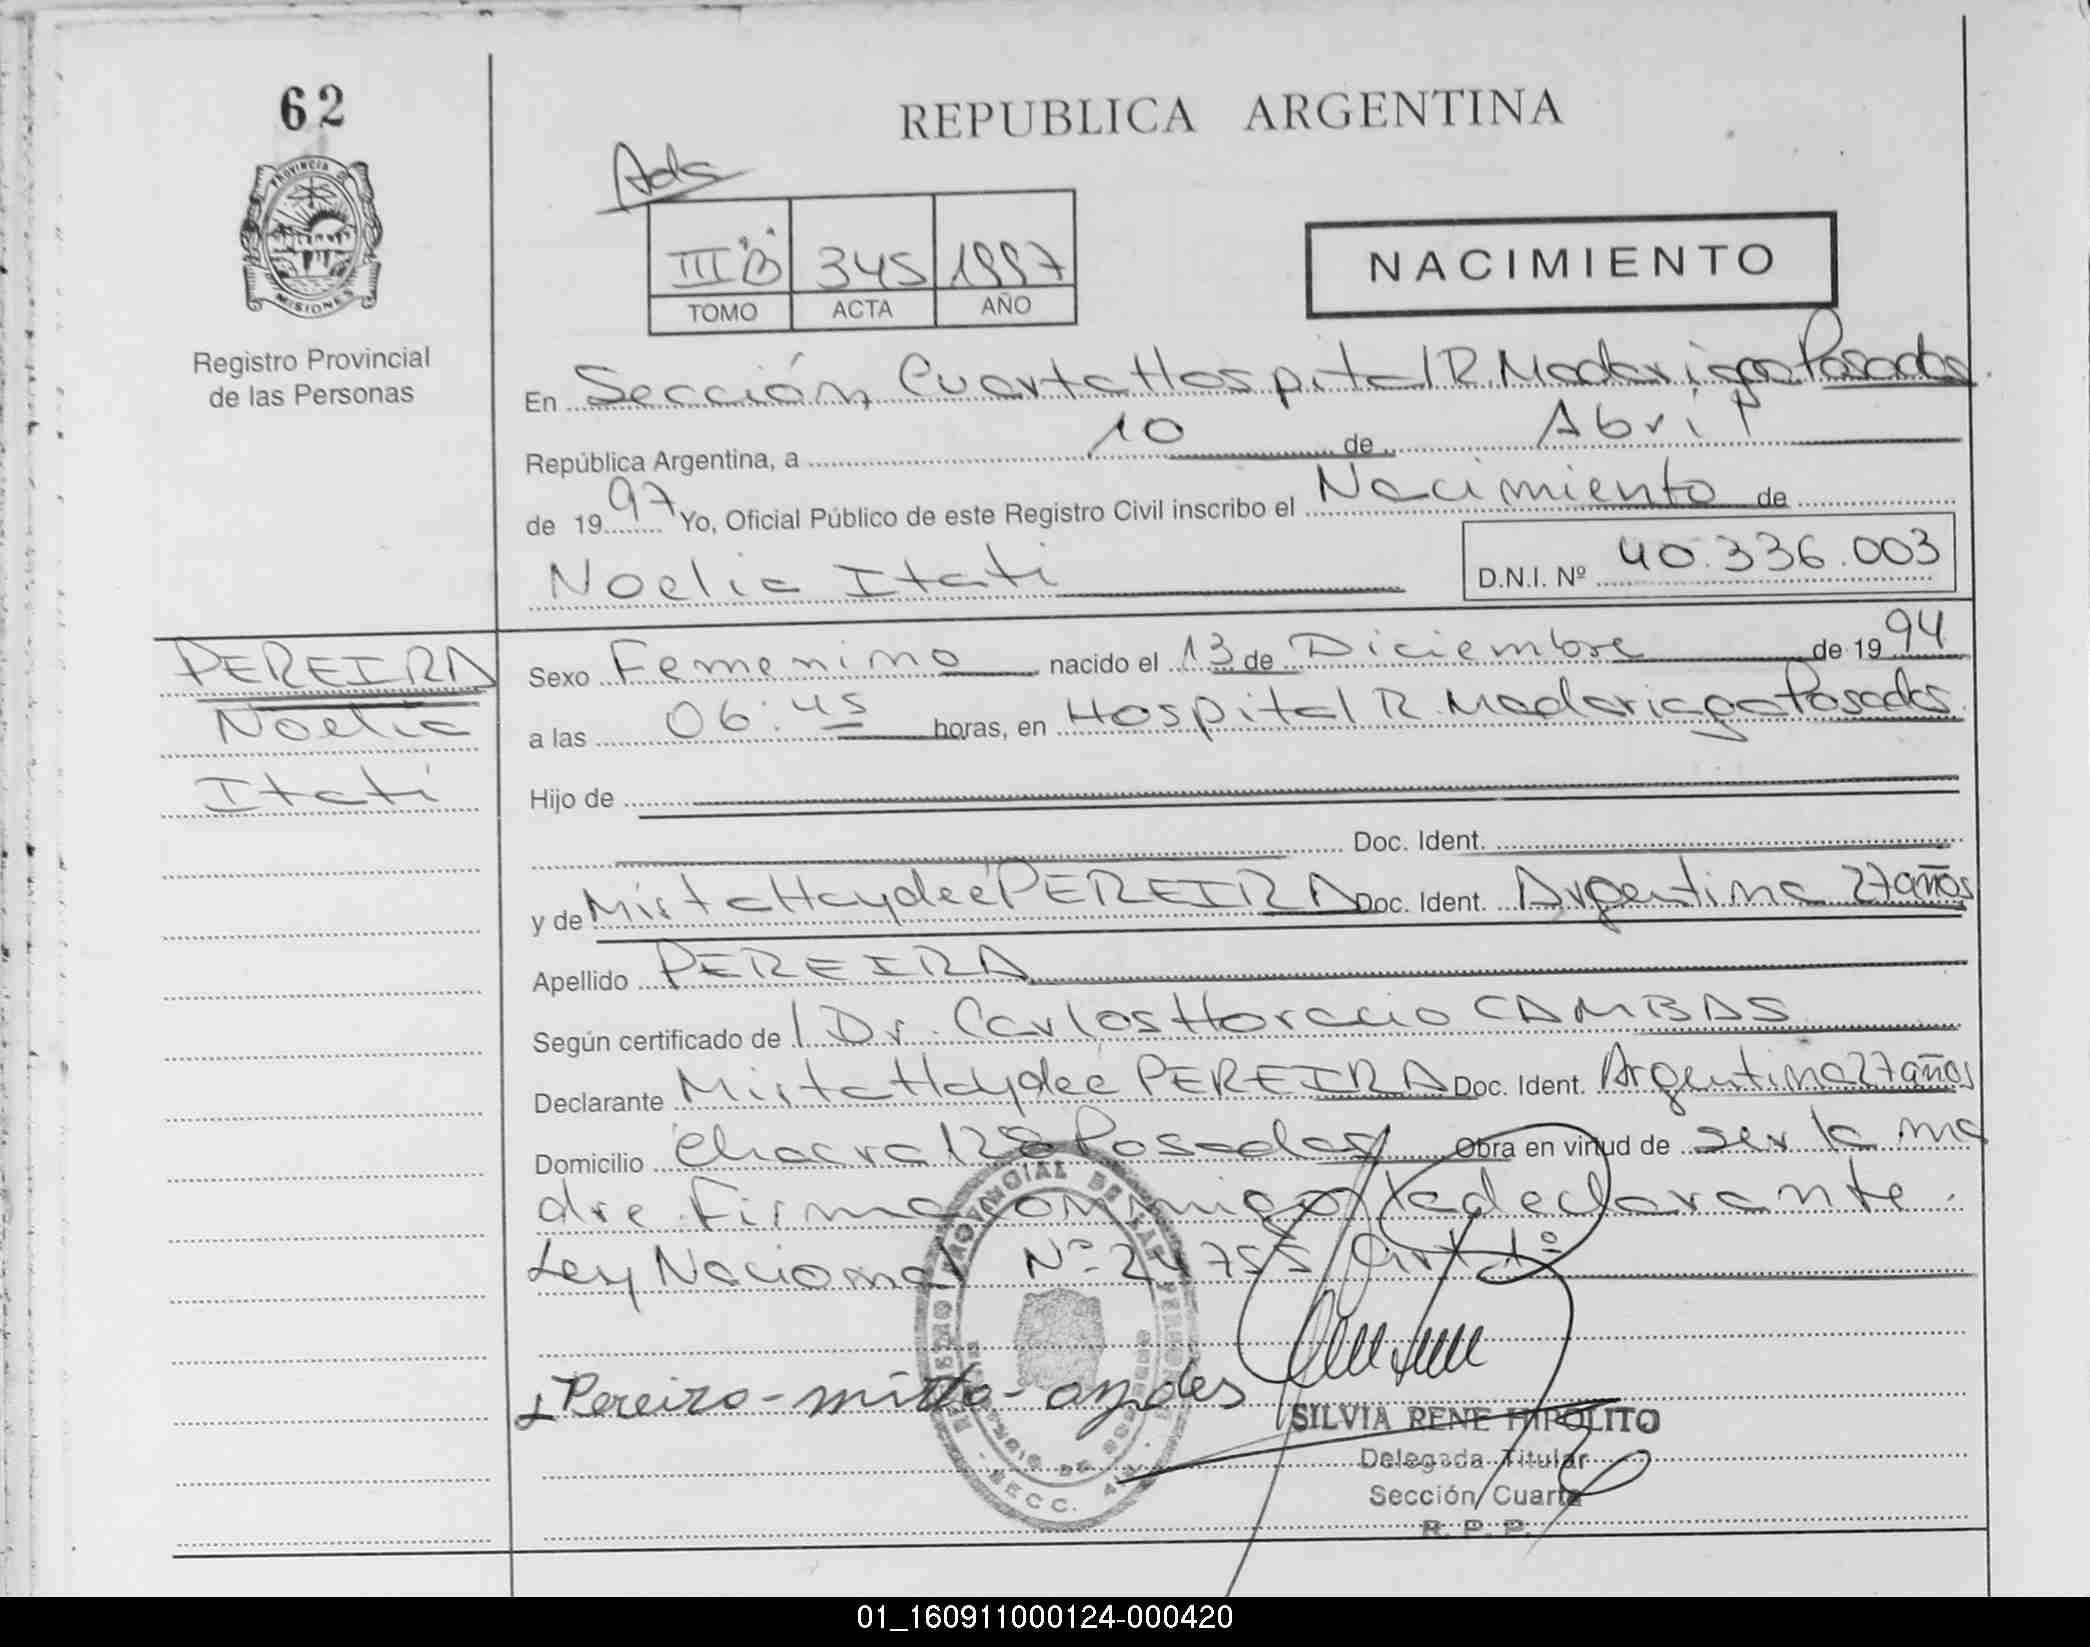 62
REPUBLICA ARGENTINA
Ads
PROVINCIA D
MISIONES
III "B" 345 1997
TOMO ACTA AÑO
NACIMIENTO
Registro Provincial
de las Personas
En Sección Cuarta Hospital R. Madariaga Posadas
República Argentina, a 10 de Abril
de 1997 Yo, Oficial Público de este Registro Civil inscribo el Nacimiento de
Noelia Itati D.N.I. Nº 40.336.003
PEREIRA
Noelia
Itati
Sexo Femenino nacido el 13 de Diciembre de 1994
a las 06:45 horas, en Hospital R. Madariaga Posadas.
Hijo de
Doc. Ident.
y de Mirta Haydeé PEREIRA Doc. Ident. Argentina 27 años
Apellido PEREIRA
Según certificado de l Dr. Carlos Horacio CAMBAS
Declarante Mirta Haydeé PEREIRA Doc. Ident. Argentina 27 años
Domicilio Chacra 128 Posadas Obra en virtud de ser la ma
dre. Firma conmigo la declarante.
Ley Nacional Nº 24.755 Art 1º
Pereira - mirta - aydes
SILVIA RENE HIPOLITO
Delegada Titular
Sección Cuarta
R. P. P.
REGISTRO PROVINCIAL DE LAS PERSONAS
SECC. 4ta.
01_160911000124-000420